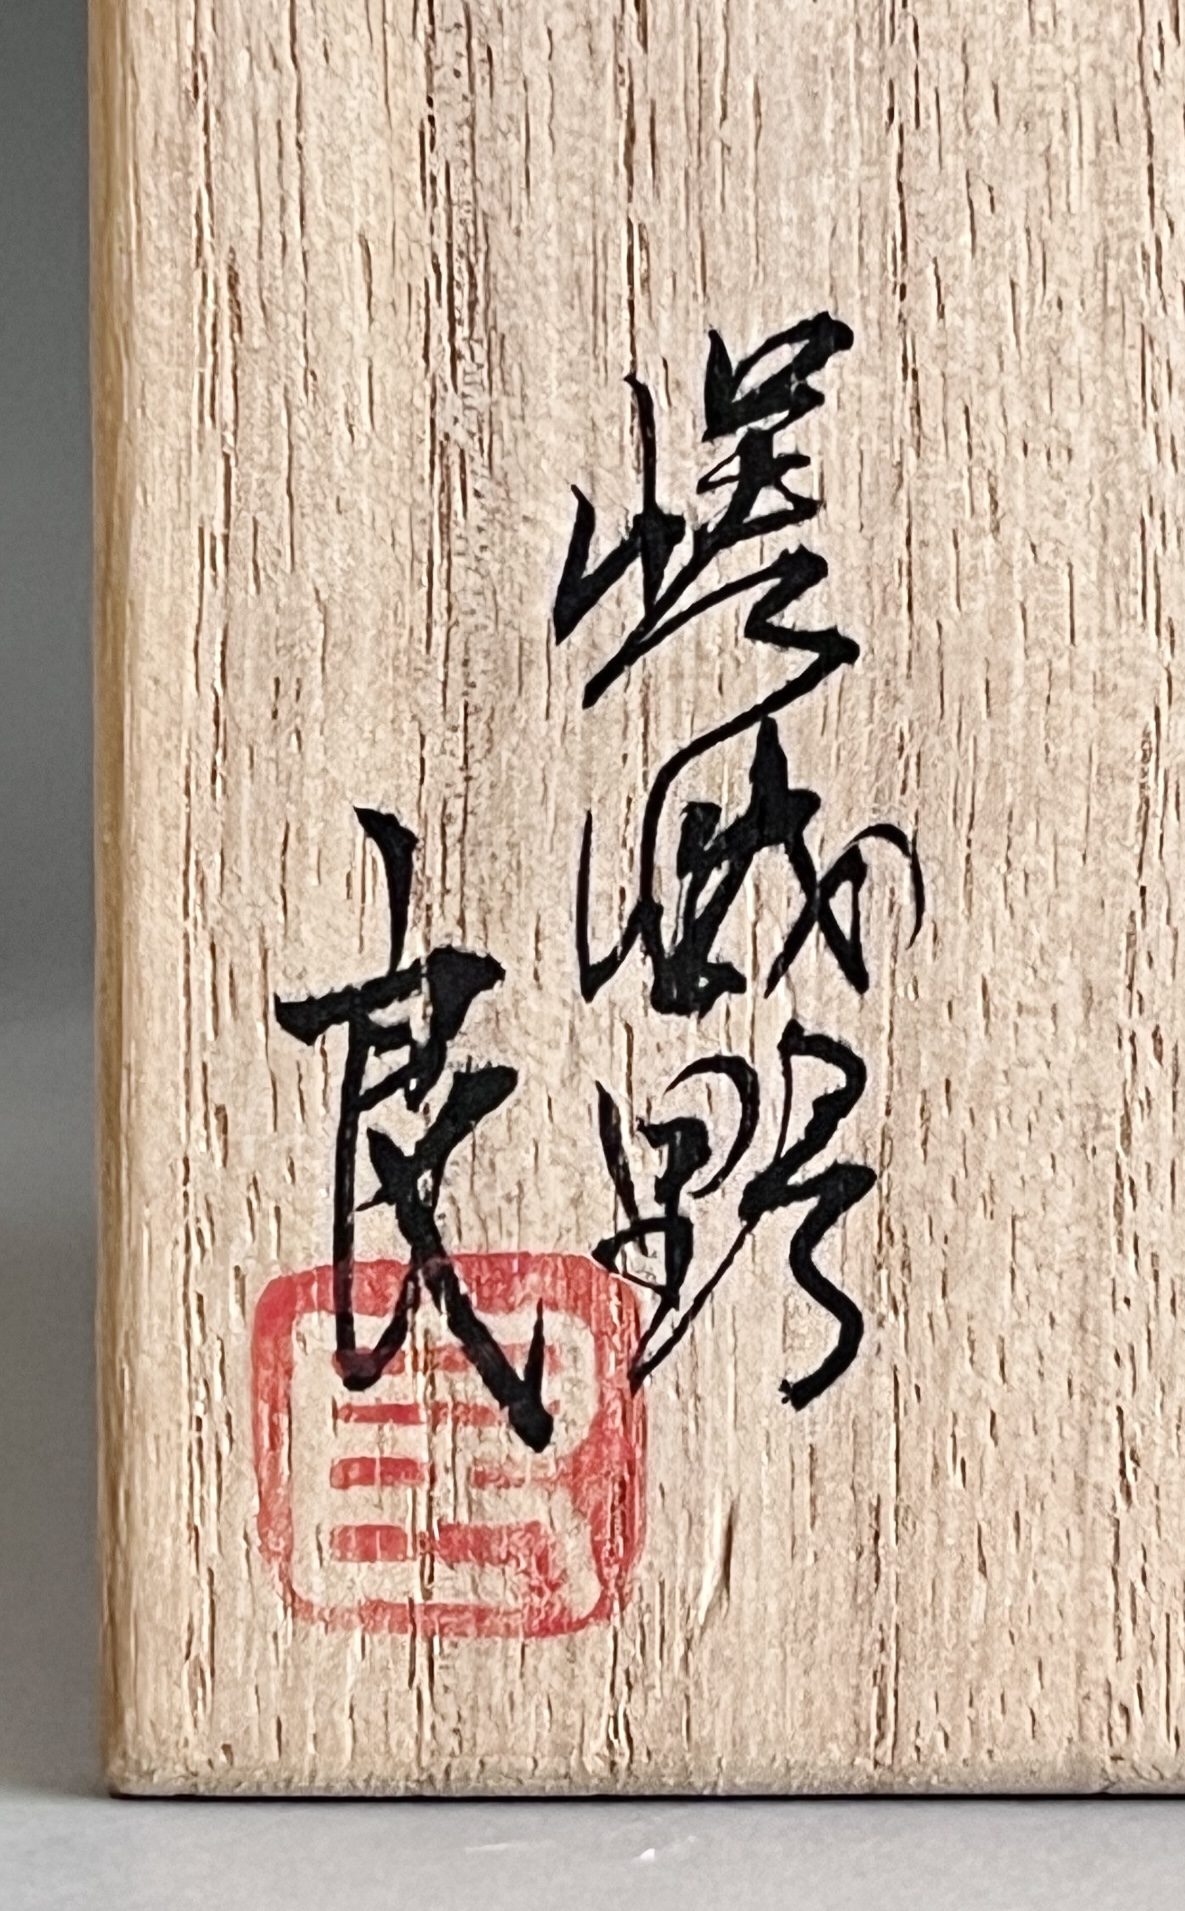 嵯峨野
良